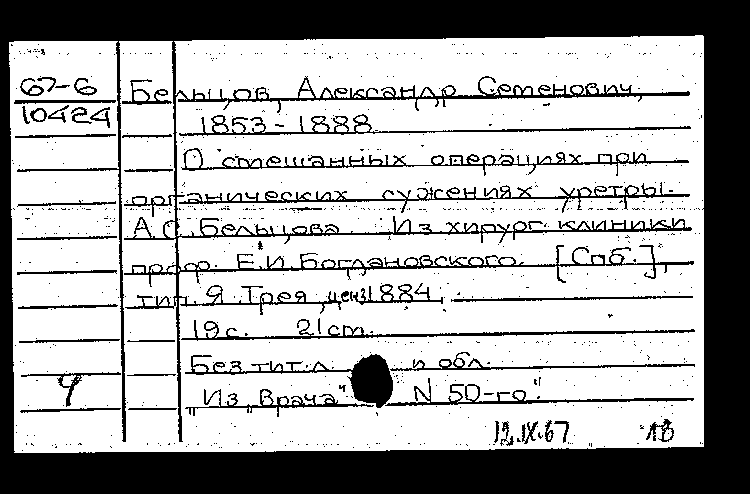 67-6
10424
Бельцов, Александр Семенович,
1853-1888
О смешанных операциях при
органических сужениях уретры.
А.С. Бельцова. Из хирург. клиники
проф. Е.И. Богдановского. [Спб.],
тип. Я. Трея, ценз. 1884.
19 с. 21 cm.
Без тит. л. и обл.
"Из "Врача" N 50-го".
12.IX.67